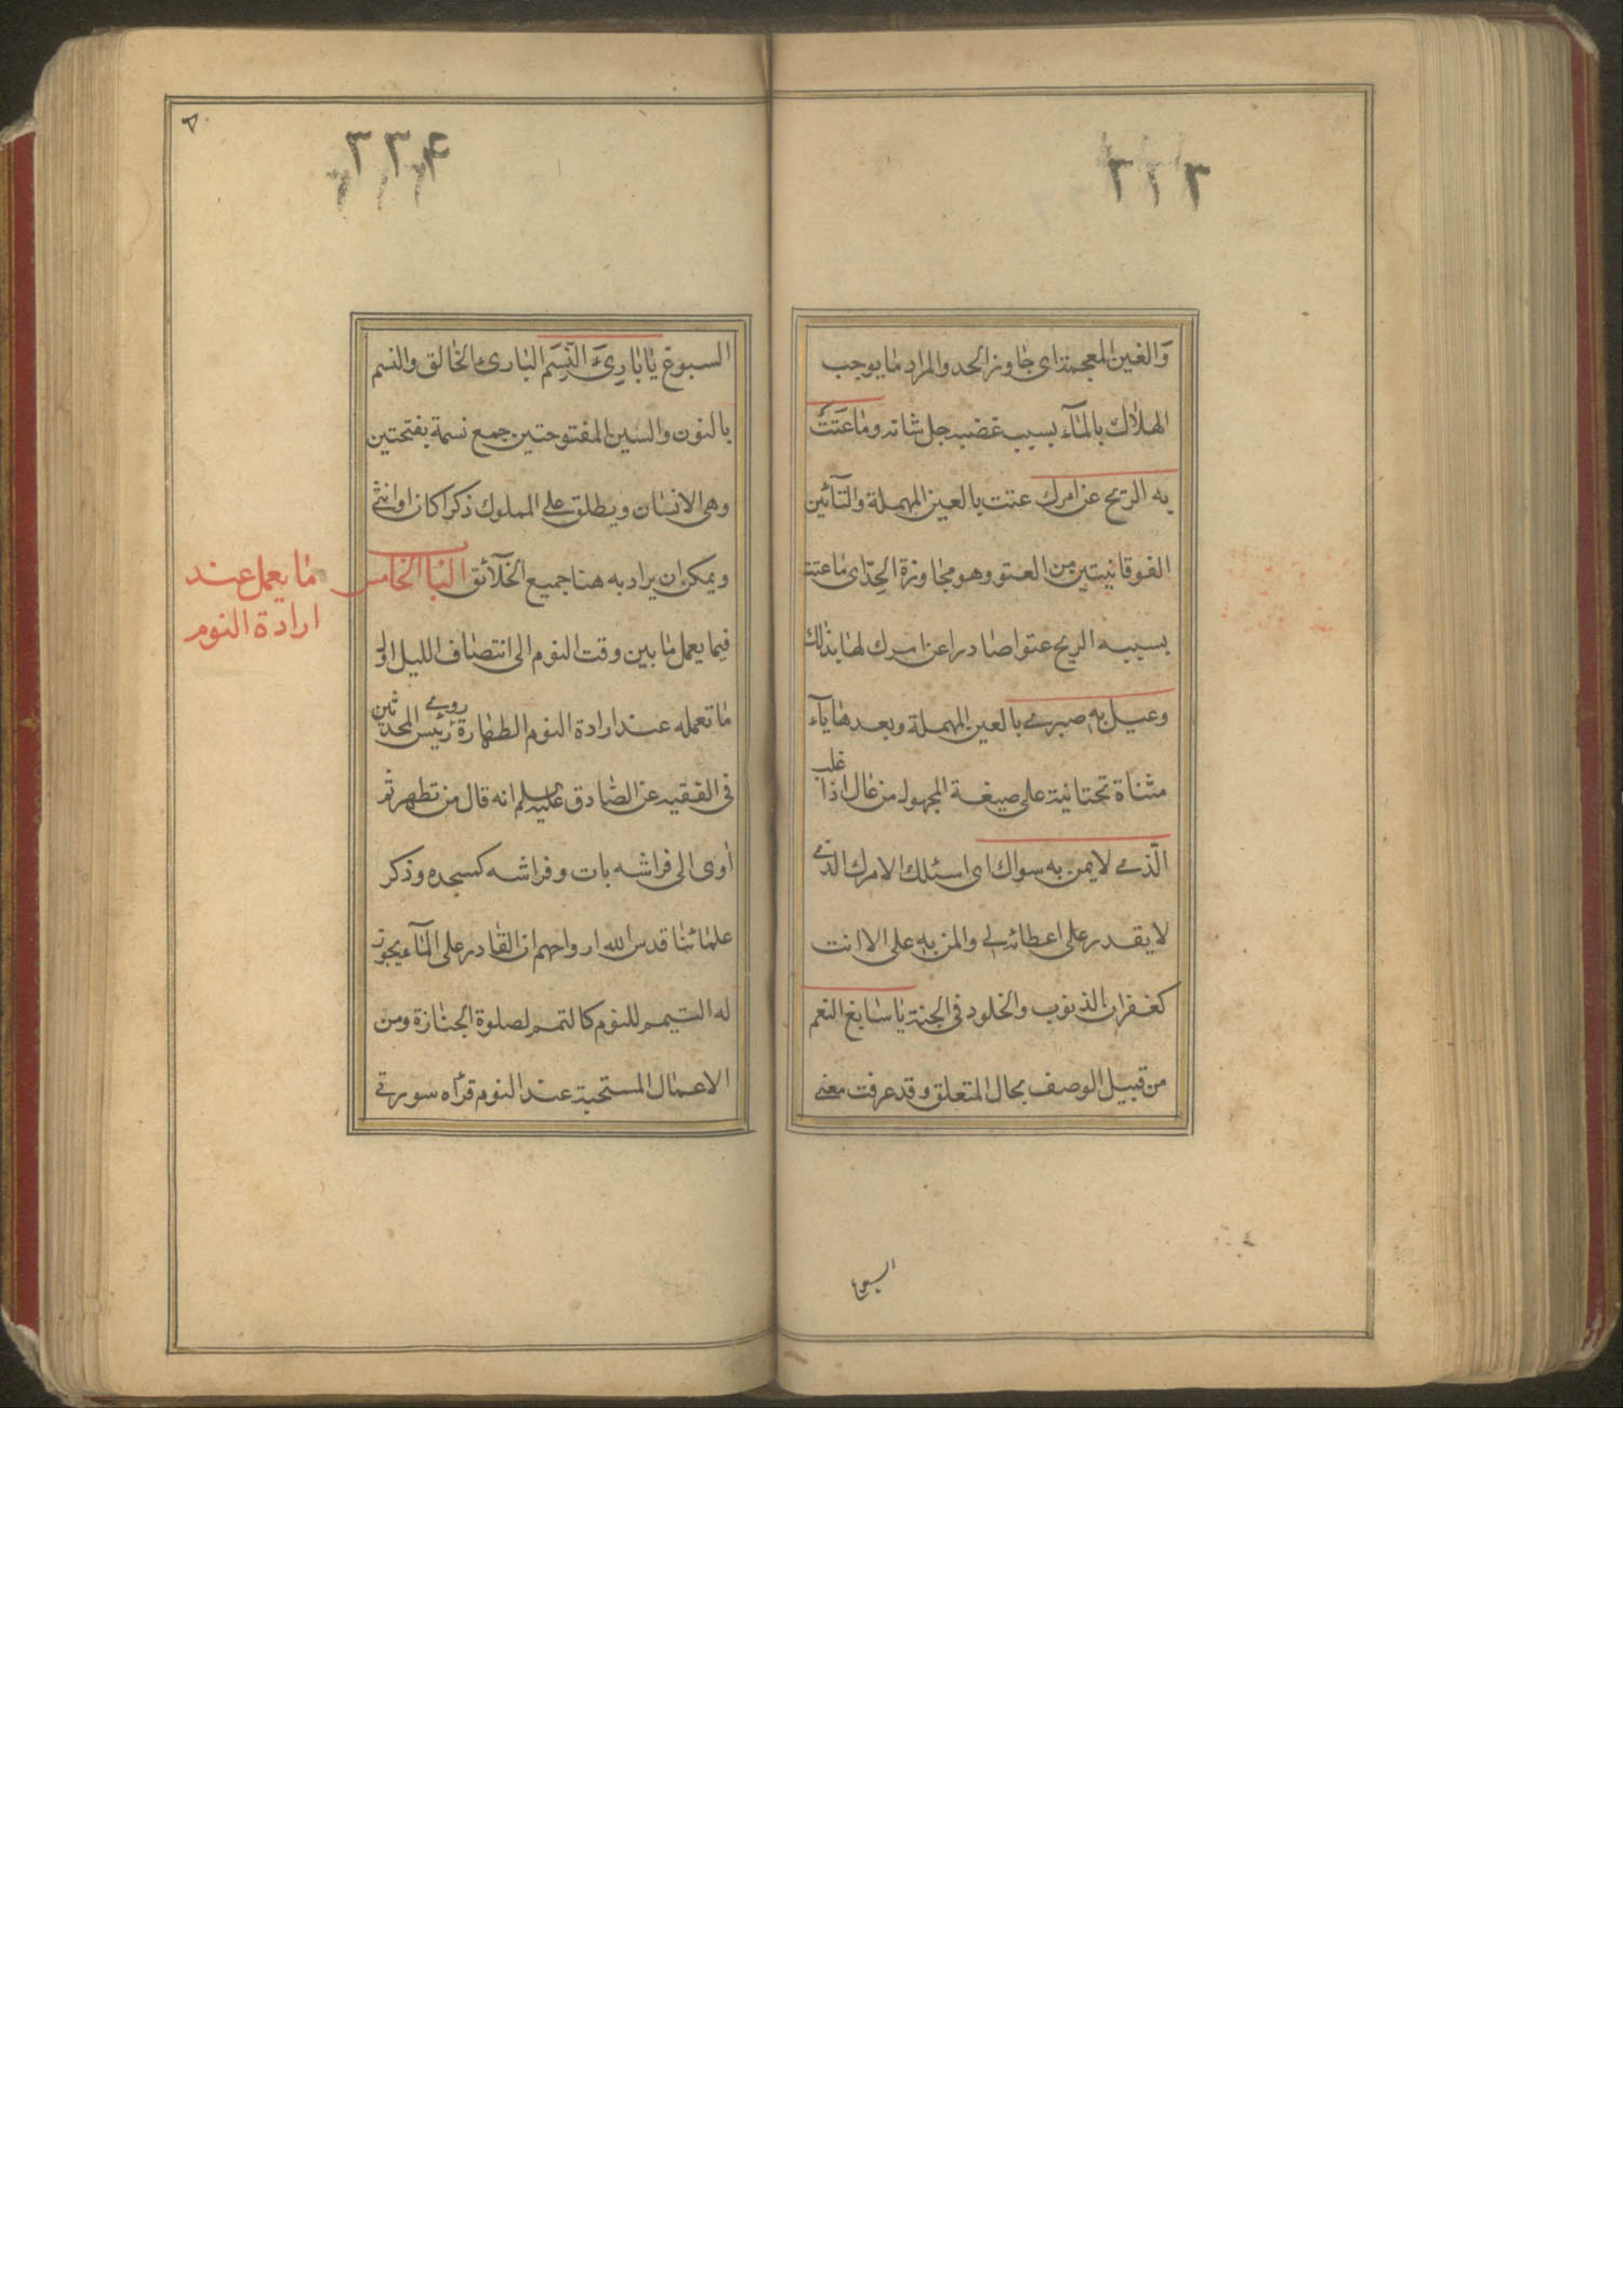 والغين المعجمة اى جاوز الحد والمراد ما يوجب
الهلاك بالمآء بسبب غضبه جل شانه وما عَتَتْ
به الريح عن امرك عتت بالعين المهملة والتآئين
الفوقانيتين من العتو وهو مجاوزة الحدّ اى ما عتت
بسببه الريح عتوا صادرا عن امرك لها بذلك
وعيل به صبرى بالعين المهملة وبعدها يآء
مثناة تحتانية على صيغة المجهول من عال اذا غلب
الّذى لا يمن به سواك اى اسئلك الامرك الذى
لا يقدر على اعطائه لى والمن به على الا انت
كغفران الذنوب والخلود فى الجنة يا سابغ النعم
من قبيل الوصف بحال المتعلق وقد عرفت معنى
السبوغ
٢٢٤
السبوغ يا بَارِئَ النَّسَم البارئ الخالق والنسم
بالنون والسين المفتوحتين جمع نسمة بفتحتين
وهى الانسان ويطلق على المملوك ذكرا كان او انثى
ويمكن ان يراد به هنا جميع الخلآئق البا الخامس
ما يعمل عند
ارادة النوم
فيما يعمل ما بين وقت النوم الى انتصاف الليل اول
ما تعمله عند ارادة النوم الطهارة روى رئيس المحدثين
فى الفقيه عن الصادق عليه سلم انه قال من تطهر ثم
أوى الى فراشه بات وفراشه كمسجده وذكر
علمائنا قدس الله ارواحهم ان القادر على المآء يجوز
له التيمم للنوم كالتمم لصلوة الجنازة ومن
الاعمال المستحبة عند النوم قرأه سورتى